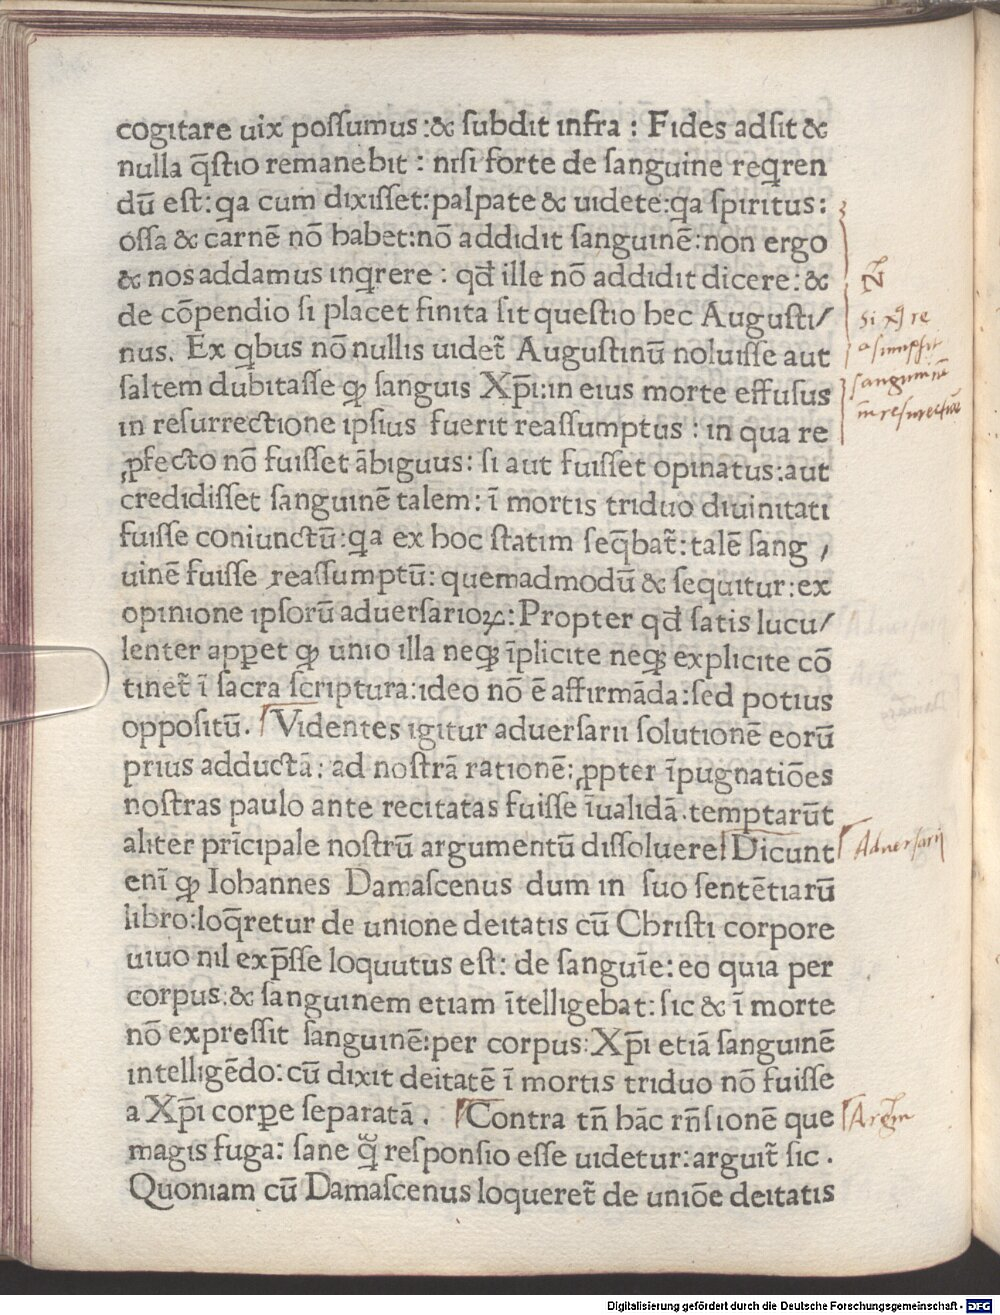 cogitare uix possumus:& subdit infra : Fides adsit &
nulla q̄stio remanebit : nisi forte de sanguine reqren
dū est: qa cum dixisset: palpate & uidete: qa spiritus:
ossa & carnē nō habet: nō addidit sanguinē: non ergo
& nos addamus inqrere : qd̄ ille nō addidit dicere: &
de cōpendio si placet finita sit questio hec Augusti/
nus. Ex qbus nō nullis uidet᷑ Augustinū noluisse aut
saltem dubitasse ꝙ sanguis Xp̄i: in eius morte effusus
in resurrectione ipsius fuerit reassumptus : in qua re
ꝓfecto nō fuisset ābiguus: si aut fuisset opinatus: aut
credidisset sanguinē talem: ī mortis triduo diuinitati
fuisse coniunctū: qa ex hoc statim seq̄bat᷑: talē sang ,
uinē fuisse reassumptū: quemadmodū & sequitur: ex
opinione ipsorū aduersarioꝝ: Propter qd̄ satis lucu/
lenter apꝑet ꝙ unio illa neqꝫ īplicite neqꝫ explicite cō
tinet᷑ ī sacra scriptura: ideo nō ē affirmāda: sed potius
oppositū. Videntes igitur aduersarii solutionē eorū
prius adductā: ad nostrā rationē: ꝓpter īpugnatiōes
nostras paulo ante recitatas fuisse īualidā. temptarūt
aliter prīcipale nostrū argumentū dissoluere Dicunt
enī ꝙ Iohannes Damascenus dum in suo sentētiarū
libro: loq̄retur de unione deitatis cū Christi corpore
uiuo nil exp̄sse loquutus est: de sanguīe: eo quia per
corpus: & sanguinem etiam ītelligebat: sic & ī morte
nō expressit sanguinē: per corpus: Xp̄i etiā sanguinē
intelligēdo: cū dixit deitatē ī mortis triduo nō fuisse
a Xp̄i corꝑe separatā . Contra tn̄ hāc rn̄sionē que
magis fuga: sane q̄ responsio esse uidetur: arguit᷑ sic .
Quoniam cū Damascenus loqueret᷑ de uniōe deitatis
Si xp̄ re
asumpsit
sanguinē
in resurectiōe
Aduersarij
Argm̄
Digitalisierung gefördert durch die Deutsche Forschungsgemeinschaft - DFG